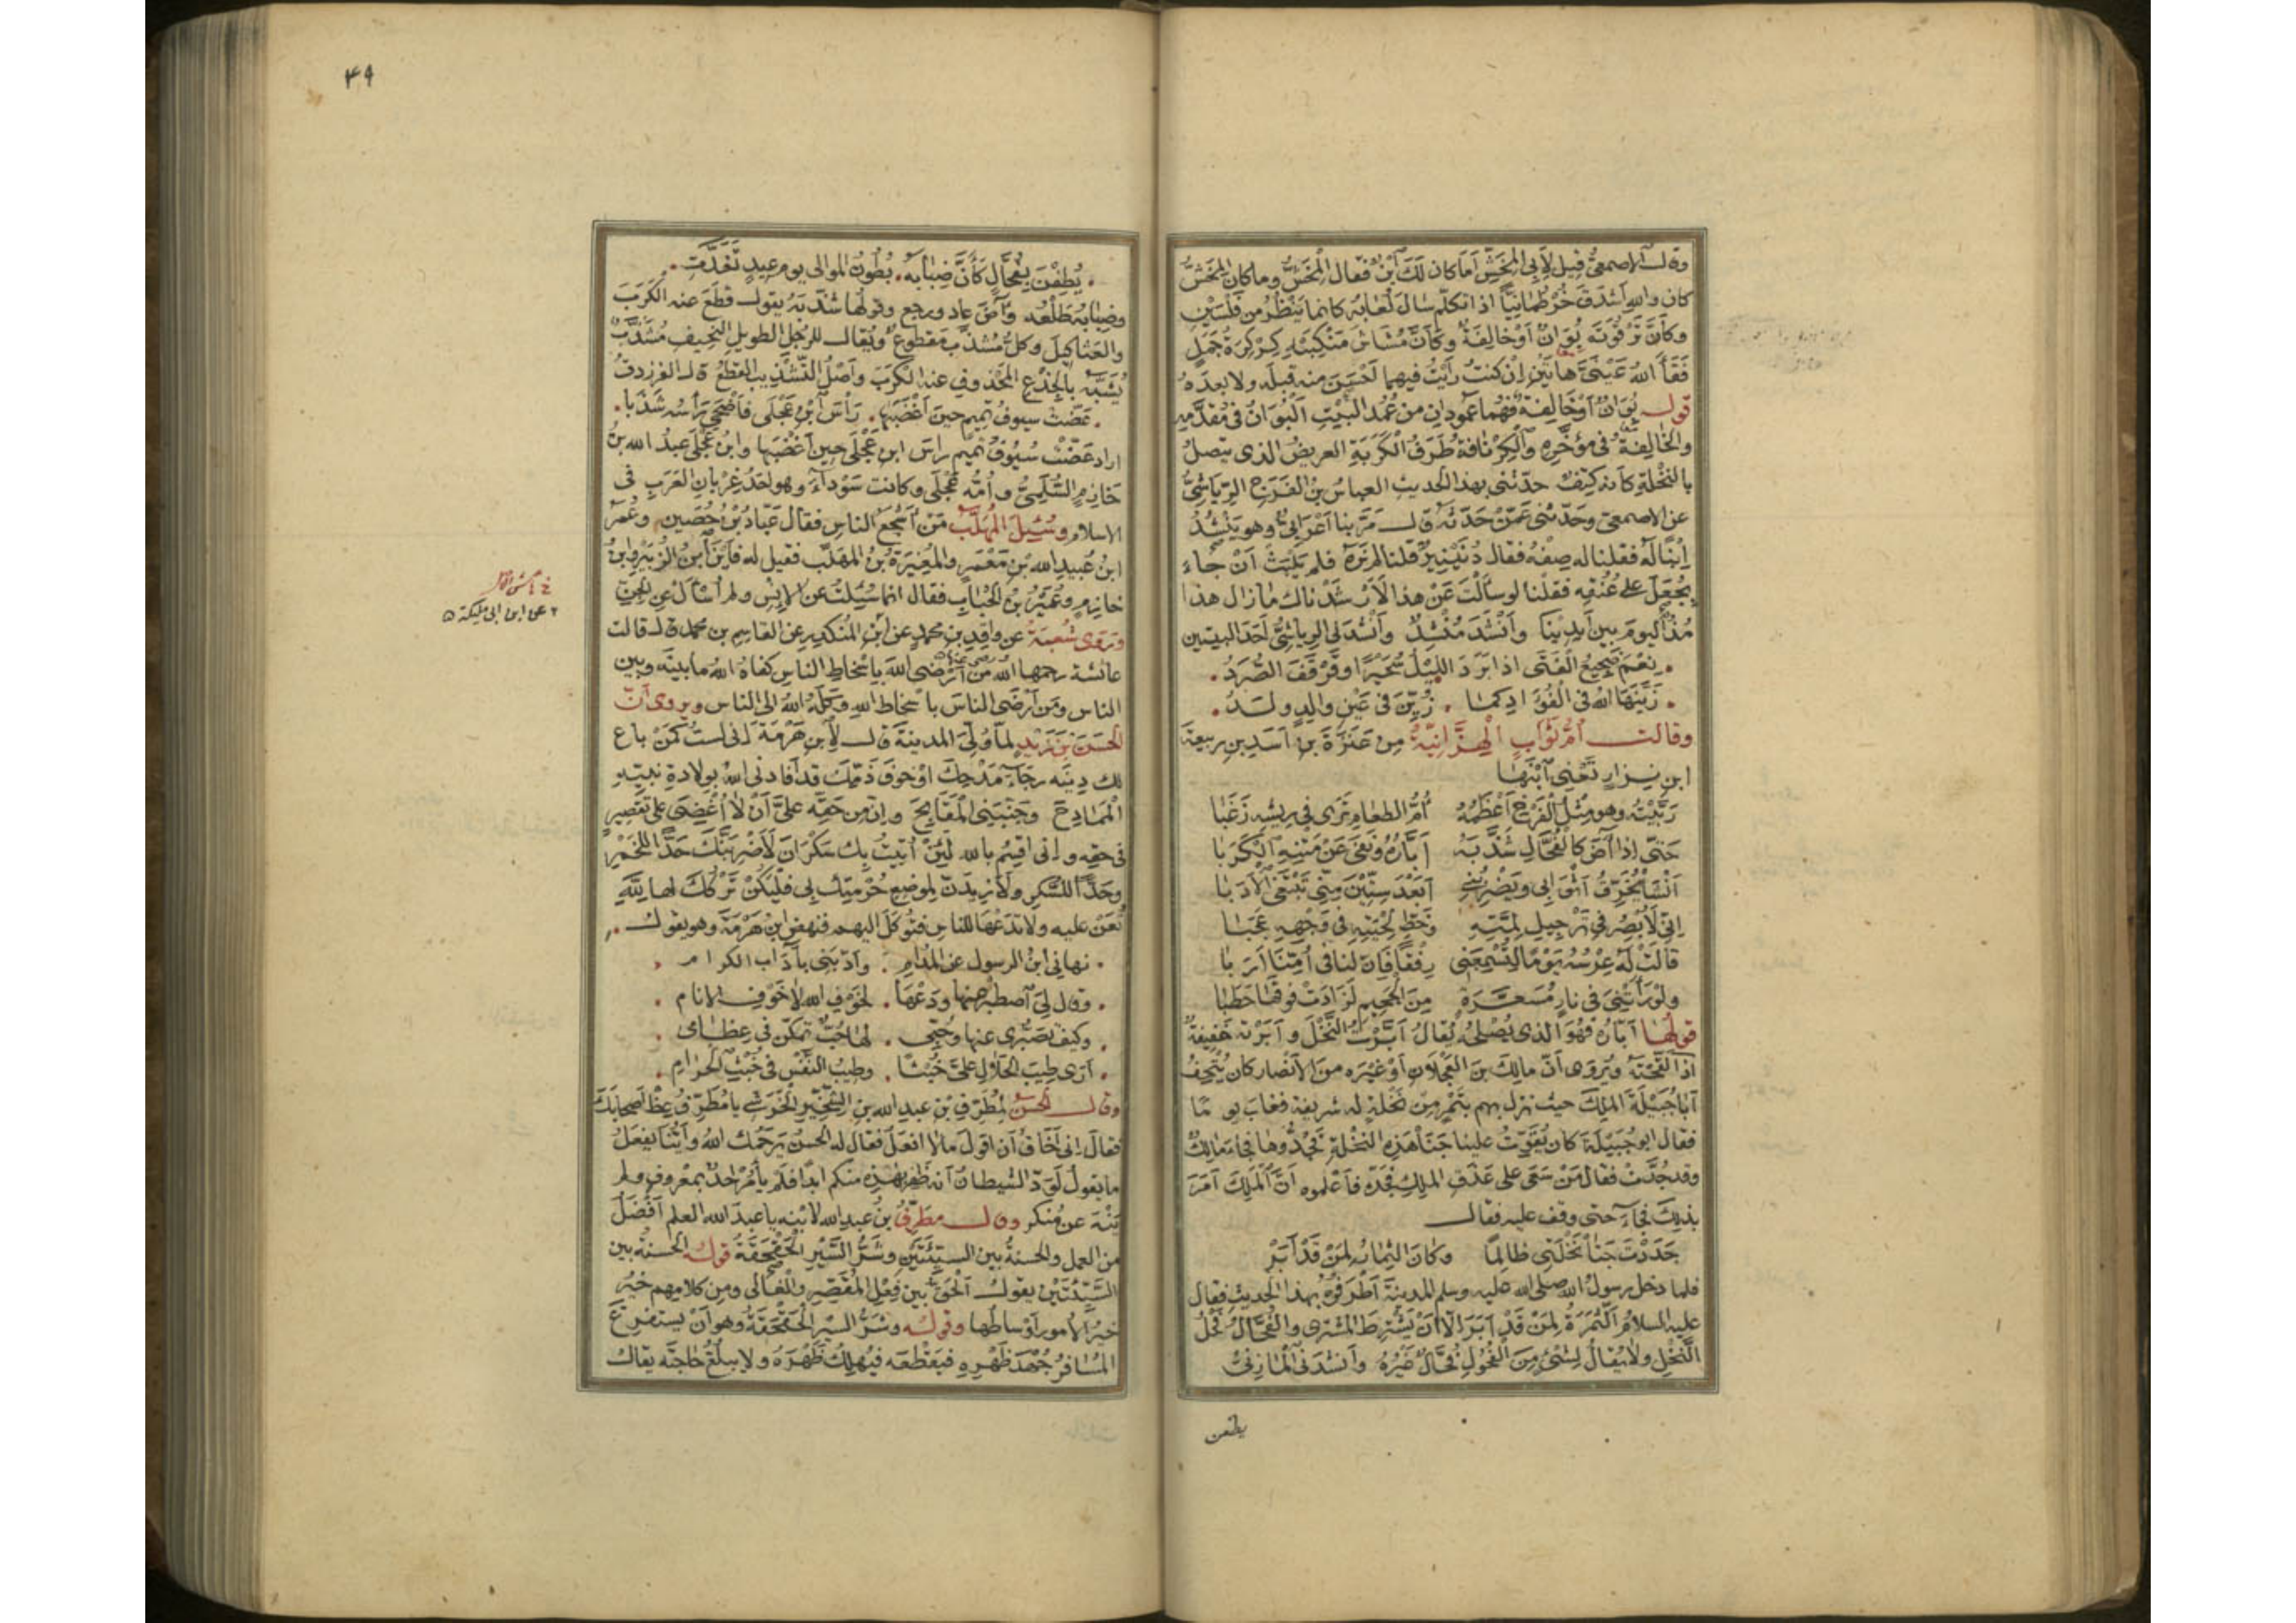 وقال الاصمعيّ قيل لأبي المِخَشّ أما كان لك ابن فقال المِخَشّ وما كان المِخَشّ
كان والله أشدق خرطمانيّا اذا تكلم سال لعابه كانما ينظر من فلسين
وكأنّ ترقوته بوان أو خالفة وكأنّ مشاش منكبيه كركرة جمل
فقأ الله عينيّ هاتين إن كنت رأيت فيهما احسن منه قبله ولا بعده
قوله بوان أو خالفة فهما عمودان من عمد البيت البوان في مقدّمه
والخالفة في مؤخّره والكرنافة طرف الكربة العريض الذى يتصل
بالنخلة كأنه كتف حدّثني بهذا الحديث العباس بن الفرج الرياشيّ
عن الاصمعي وحدثني عمّن حدّثه قال مرّ بنا أعرابيّ وهو ينشد
ابنا له فقلنا له صفه فقال دنينير قلنا لم نره فلم يلبث أن جاء
بجعل على عنقه فقلنا لو سألت عن هذا لأرشدناك ما زال هذا
مذ اليوم بين أيدينا وأنشد منشد وأنشدني الرياشيّ أحد البيتين
نعم ضجيع الفتى اذا برد الليل سحيرا وقرقف الصرد
زيّنها الله في الفؤاد كما زيّن في عين والد ولد
وقالت أم ثواب الهزّانية من عنزة بن أسد بن ربيعة
ابن نزار تعني ابنها
ربّيته وهو مثل الفرخ أعظمه أمّ الطعام ترى في ريشه زغبا
حتى اذا آض كالفحّال شذّبه أبّاره ونفى عن متنه الكربا
أنشا يخرّق أثوابي ويضربني أبعد ستين منّي تبتغي الأدبا
إنّي لأبصر في ترجيل لمّته وخطّ لحيته في وجهه عجبا
قالت له عرسه يوما لتسمعني رفقا فإن لنا في أمّنا أربا
ولو رأتني في نار مسعّرة من الجحيم لزادت فوقها حطبا
قولها أبّاره فهو الذى يصلحه يقال أبّرت النخل وأبرته خفيفة
اذا لقّحته ويروى أنّ مالك بن العجلان أو غيره من الأنصار كان يتحف
أبا جبيلة الملك حيث نزل بهم بتمر من نخلة له شريفة فغاب يوما
فقال ابو جبيلة كان يفوّت علينا جنا هذه النخلة فجدّوها فجاء مالك
وقد جدّت فقال من سعى على عذق الملك فجدّه فأعلموه أنّ الملك أمر
بذلك فجاء حتى وقف عليه فقال
جددت جنا نخلتي ظالما وكان الثمار لمن قد أبر
فلما دخل رسول الله صلى الله عليه وسلم المدينة أطرفوه بهذا الحديث فقال
عليه السلام الثمرة لمن قد أبر الا أن يشترط المشترى والفحّال فحل
النخل ولا يقال لشيء من الفحول فحّال غيره وأنشدني المازنيّ
يطفن
٤٩
يطفن بفحّال كأنّ ضبابه بطون الموالى يوم عيد تغدّت
وضبابه طلعه وآض عاد ورجع وقولها شذّبه يقول قطع عنه الكرب
والعثاكيل وكل مشذّب مقطوع ويقال للرجل الطويل النحيف مشذّب
يشبّه بالجذع المحذوف عنه الكرب وأصل التشذيب القطع قال الفرزدق
عضّت سيوف تميم حين أغضبها رأس ابن عجلى فأضحى رأسه شذبا
اراد عضّت سيوف تميم راس ابن عجلى حين أغضبها وابن عجلى عبد الله بن
خازم السّلميّ وأمّه عجلى وكانت سوداء وهو احد غربان العرب في
الاسلام وسئل المهلّب من أشجع الناس فقال عبّاد بن حصين وعمر
ابن عبيد الله بن معمر والمغيرة بن المهلب فقيل له فأين ابن الزبير وابن
خازم وعمير بن الحباب فقال انما سئلت عن الإنس ولم أسأل عن الجنّ
وتروى شعبة عن واقد بن محمد عن ابن المنكدر عن القاسم بن محمد قال قالت
خ
٢ عن ابن ابى مليكة
عائشة رحمها الله من أرضى الله بإسخاط الناس كفاه الله ما بينه وبين
الناس ومن أرضى الناس باسخاط الله وكله الله الى الناس ويروى أنّ
الحسن بن زيد لما ولي المدينة قال لابن هرمة إني لست كمن باع
لك دينه رجاء مدحك أو خوف ذمّك قد أفادني الله بولادة نبيّه
الممادح وجنّبني المقابح وإن من حقه عليّ أن لا أغضي على تقصير
في حقه واني اقسم بالله لئن أتيت بك سكران لأضربنّك حدّا للخمر
وحدّا للسّكر ولأزيدنّ لموضع حرمتك بي فليكن تركك لها لله
تعن عليه ولا تدعها للناس فتوكل اليهم فنهض ابن هرمة وهو يقول
نهاني ابن الرسول عن المدام وأدّبني بآداب الكرام
وقال لي اصطبر عنها ودعها لخوف الله لا خوف الانام
وكيف تصبّرى عنها وحبّي لها حبّ تمكّن في عظامى
أرى طيب الحلال عليّ خبثا وطيب النفس في خبث الحرام
وقال الحسن لمطرّف بن عبد الله بن الشخّير الحرشي يا مطرّف عظ أصحابك
فقال اني أخاف أن اقول ما لا افعل فقال له الحسن يرحمك الله وأيّنا يفعل
ما يقول لودّ الشيطان أنه ظفر بهذه منكم ابدا فلم يأمر احد بمعروف ولم
ينه عن منكر وقال مطرّف بن عبد الله لابنه يا عبد الله العلم أفضل
من العمل والحسنة بين السيئتين وشرّ السّير الحقحقة قوله الحسنة بين
السيئتين يقول الحق بين فعل المقصّر والغالى ومن كلامهم خير
خير الأمور أوساطها وقوله وشرّ السير الحقحقة وهو أن يستفرغ
المسافر جهد ظهره فيقطعه فيهلك ظهره ولا يبلغ حاجته يقال